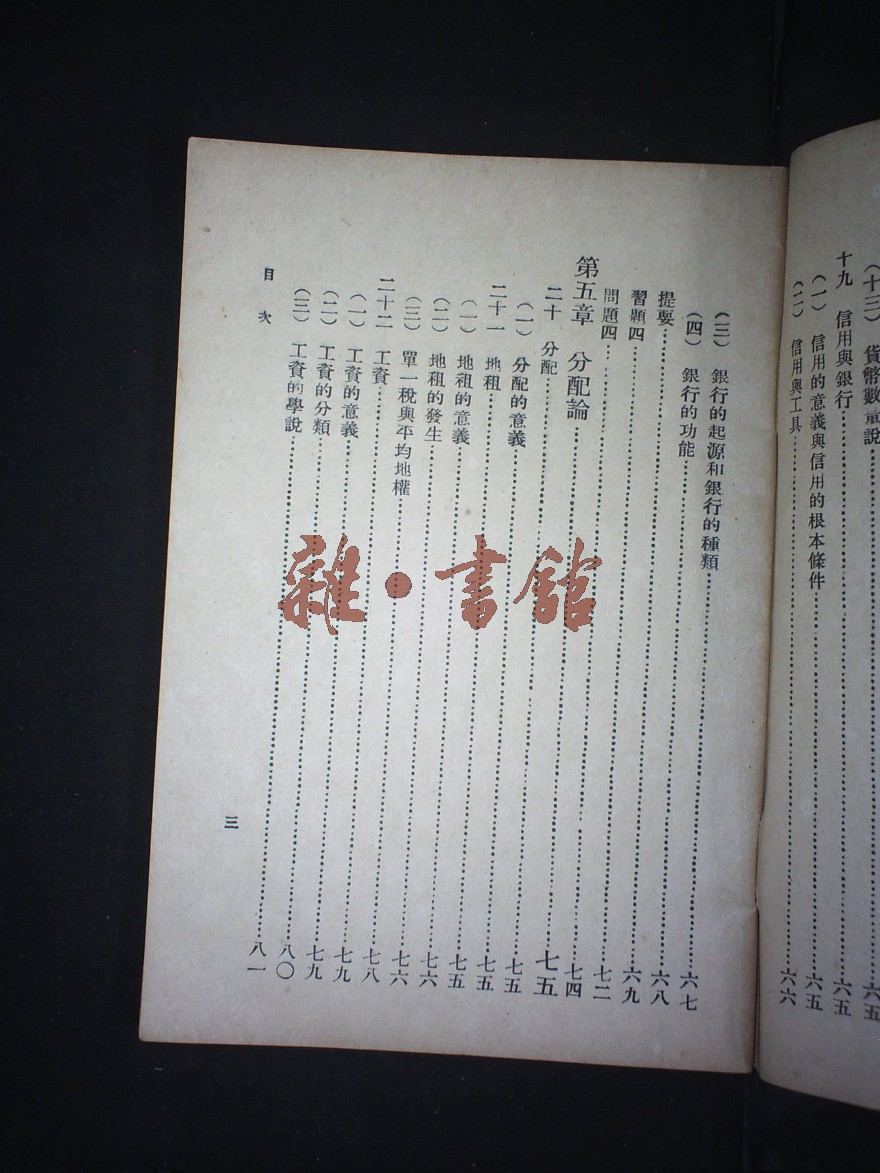 (十三) 貨幣數量說……六五
十九 信用與銀行……六五
(一) 信用的意義與信用的根本條件……六五
(二) 信用與工具……六六
(三) 銀行的起源和銀行的種類……六七
(四) 銀行的功能……六八
提要……六九
習題四……七二
問題四……七四
第五章 分配論……七五
二十 分配……七五
(一) 分配的意義……七五
二十一 地租……七五
(一) 地租的意義……七六
(二) 地租的發生……七六
(三) 單一稅與平均地權……七八
二十二 工資……七九
(一) 工資的意義……七九
(二) 工資的分類……八〇
(三) 工資的學說……八一
目次
三
雜·書館